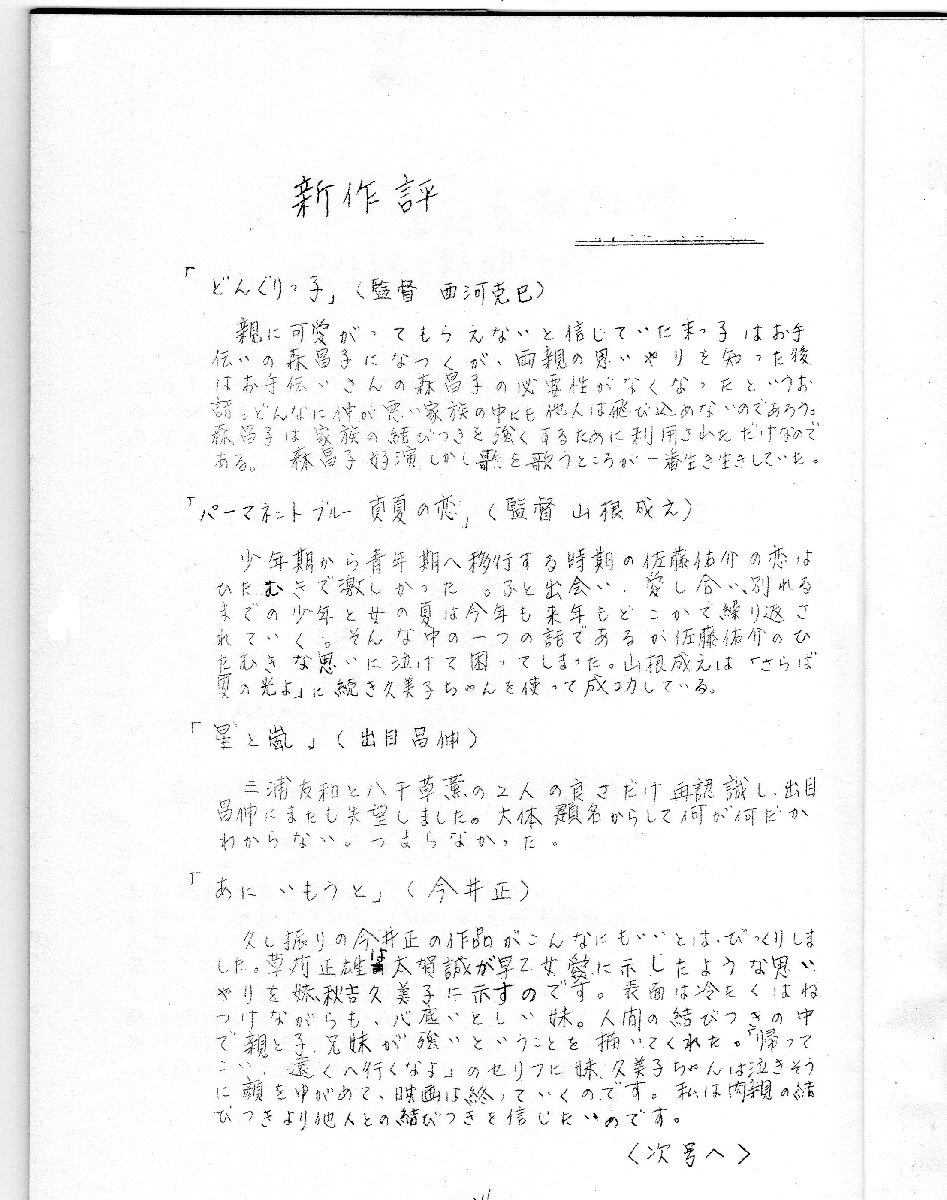 新作評
「どんぐりっ子」(監督 西河克巳)
親に可愛がってもらえないと信じていた末っ子はお手
伝いの森昌子になつくが、両親の思いやりを知った後
はお手伝いさんの森昌子の必要性がなくなったというお
話。どんなに仲が悪い家族の中にも他人は飛び込めないのであろう。
森昌子は家族の結びつきを強くするために利用されただけなので
ある。 森昌子好演しかし歌を歌うところが一番生き生きしていた。
「パーマネントブルー 真夏の恋」(監督 山根成之)
少年期から青年期へ移行する時期の佐藤佑介の恋は
ひたむきで激しかった。ふと出会い、愛し合い、別れる
までの少年と女の夏は今年も来年もどこかで繰り返さ
れていく。そんな中の一つの話であるが佐藤佑介のひ
たむきな思いに泣けて困ってしまった。山根成之は「さらば
夏の光よ」に続き久美子ちゃんを使って成功している。
「星と嵐」(出目昌伸)
三浦友和と八千草薫の2人の良さだけ再認識し、出目
昌伸にまたも失望しました。大体題名からして何が何だか
わからない。つまらなかった。
「あにいもうと」(今井正)
久し振りの今井正の作品がこんなにもいいとは、びっくりしま
した。草刈正雄は太賀誠が早乙女愛に示したような思い
やりを妹秋吉久美子に示すのです。表面は冷たくはね
つけながらも、心底いとしい妹。人間の結びつきの中
で親と子、兄妹が強いということを描いてくれた。「帰って
こい、遠くへ行くなよ」のセリフに妹、久美子ちゃんは泣きそう
に顔をゆがめて、映画は終っていくのです。私は肉親の結
びつきより他人との結びつきを信じたいのです。
<次号へ>